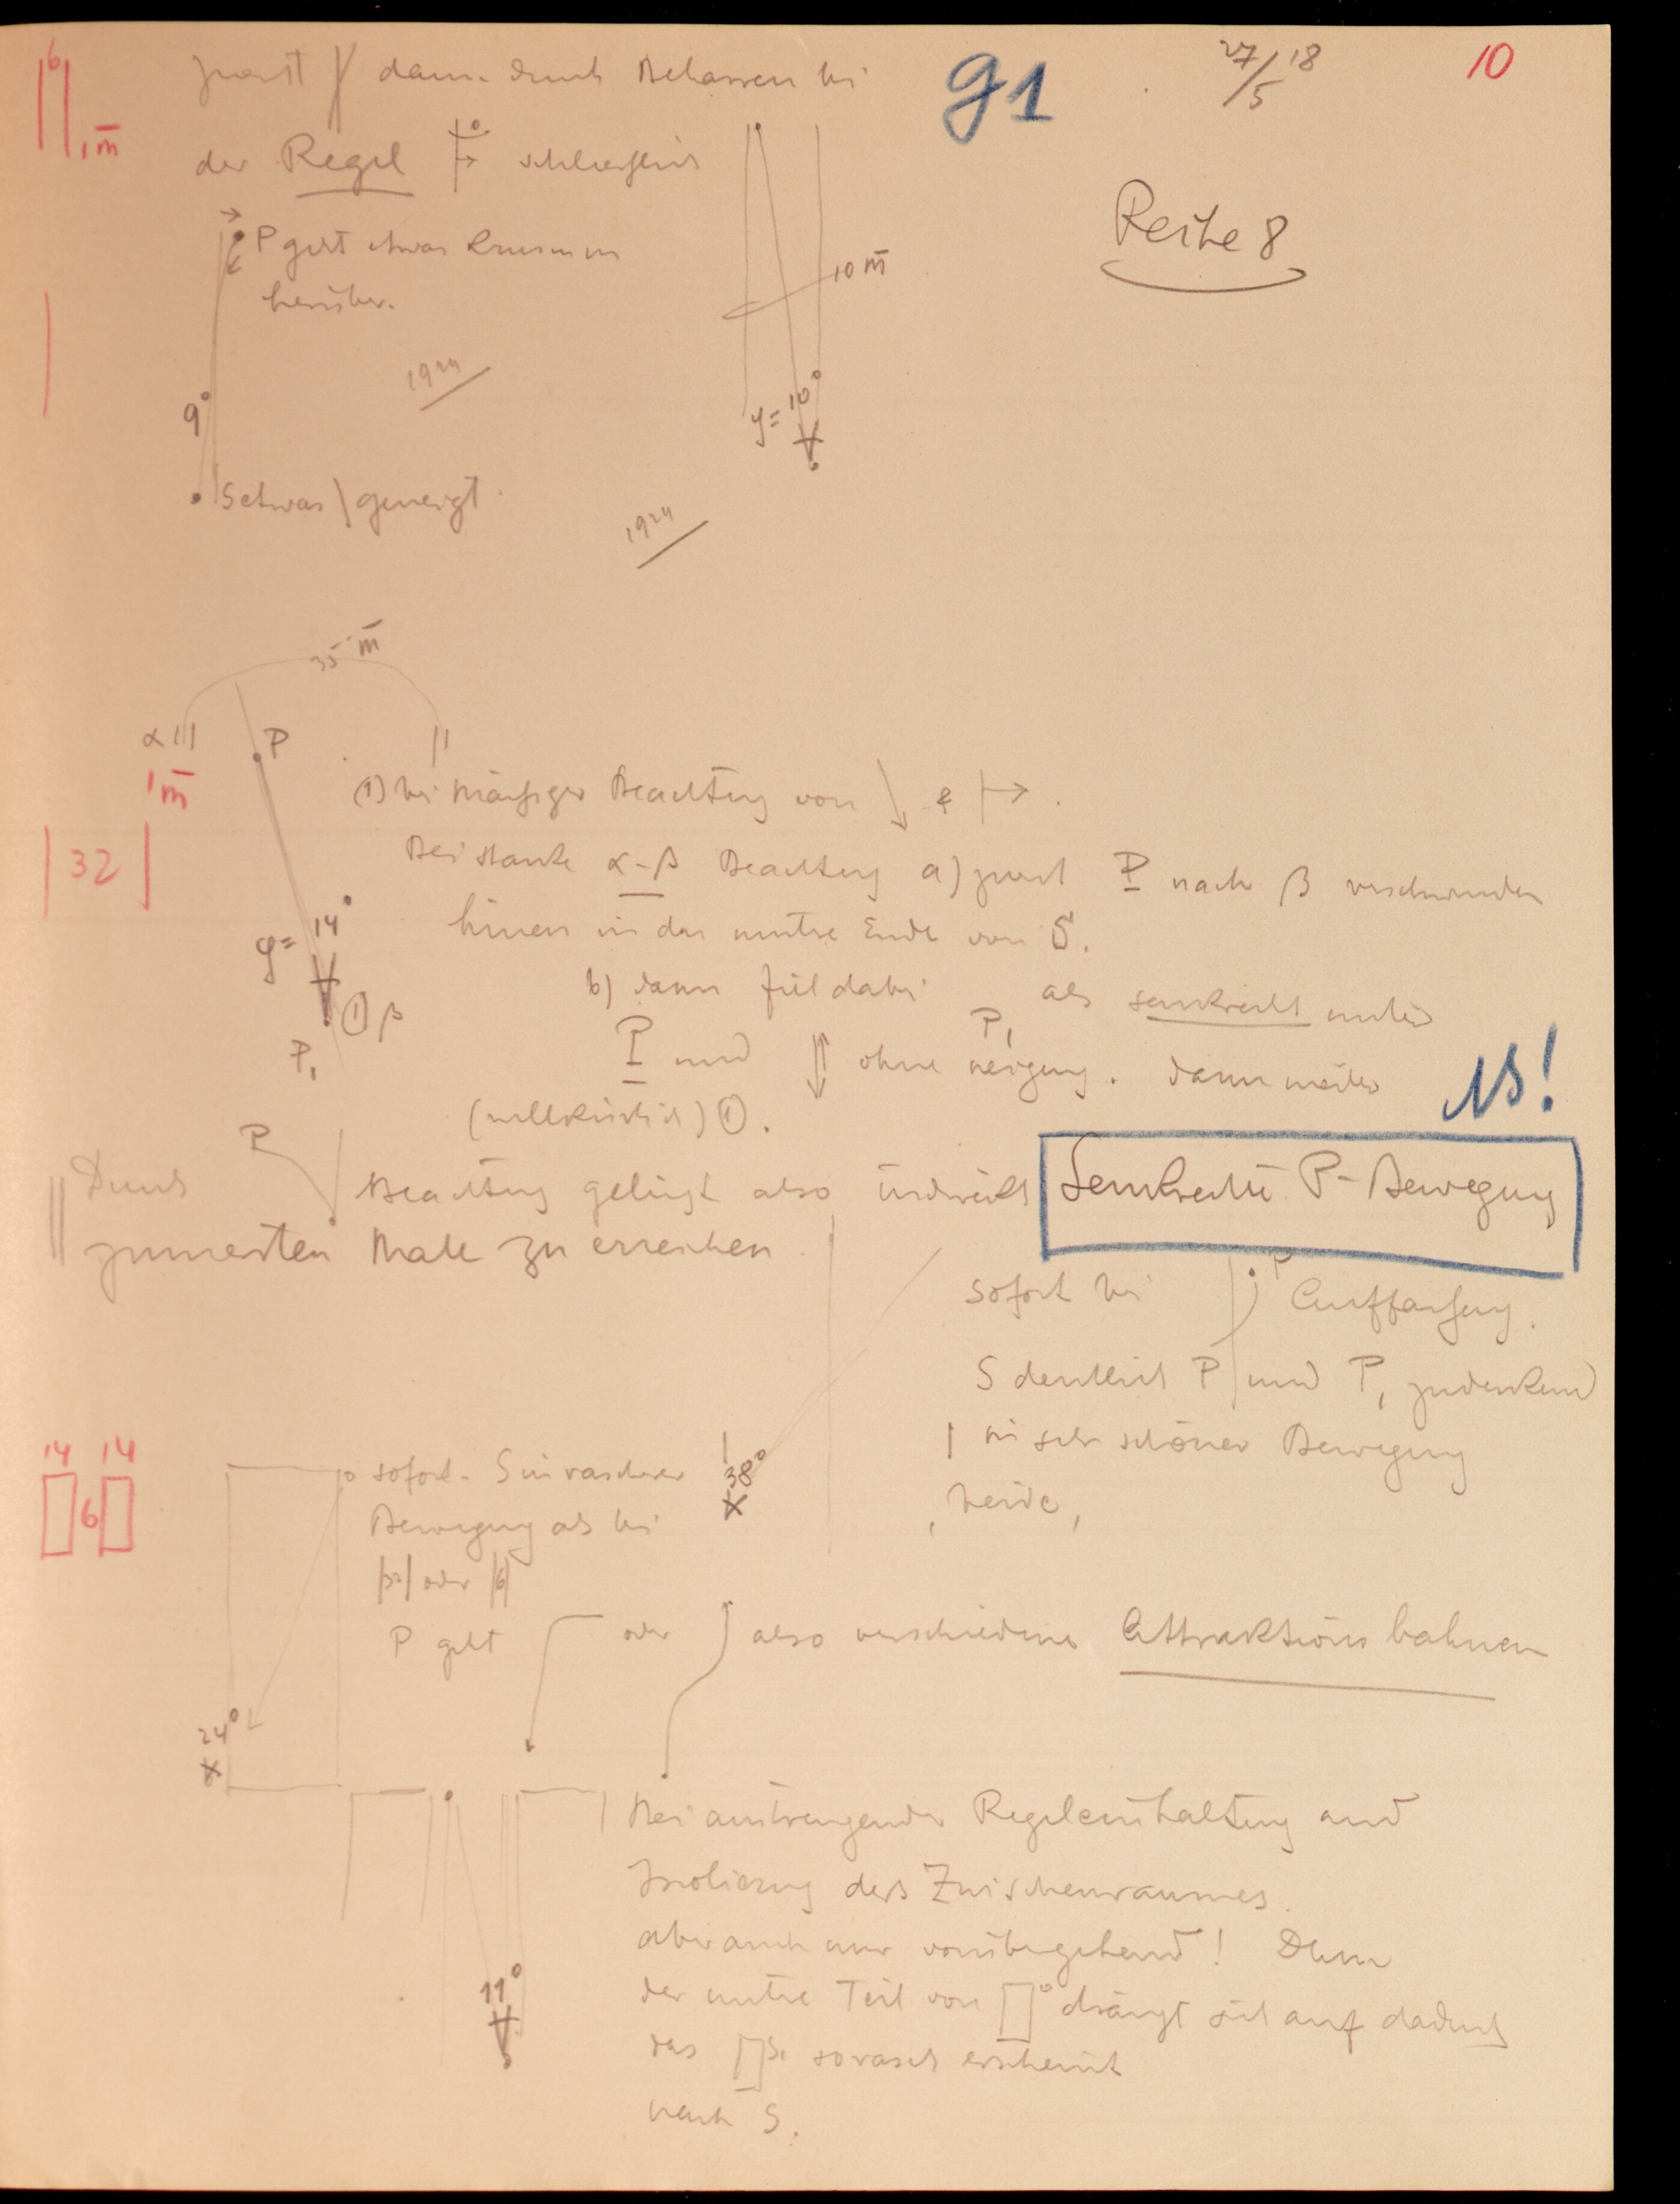 6
1 m̅
g1
27/5 18
10
dann durch Belassen bei
der Regel schliesslich
Reihe 8
P geht etwas krumm
herüber.
10 m̅
9°
1924
φ = 10°
S etwas \ geneigt.
1924
35 m̅
α P
1 m̅
(1) bei mässiger Beachtung von ↓ & |→.
32
Bei starke α-β Beachtung a) zuerst P nach β verschwunden
hinein in das untre Ende von S.
φ = 14°
b) dann fiel dabei P₁ als senkrecht unter
① β
P₁
P und ⇅ ohne Neigung. dann weiter
(willkürlich) ①.
NB!
P
Durch Beachtung gelingt also indirekt Senkrechte P-Bewegung
zumersten Male zu erreichen
sofort bei P Auffassung.
S deutlich P und P₁ zudenkend
in sehr schöner Bewegung
beide,
14 14
6
38°
sofort. S in rascherer
Bewegung als bei
|32| oder |6|
P geht oder also verschiedene Attraktionsbahnen
24°
Bei anstrengender Regeleinhaltung und
Isolierung des Zwischenraumes
aber auch nur vorübergehend! Denn
11°
der untre Teil von drängt sich auf dadurch
das so rasch erscheint
nach S.